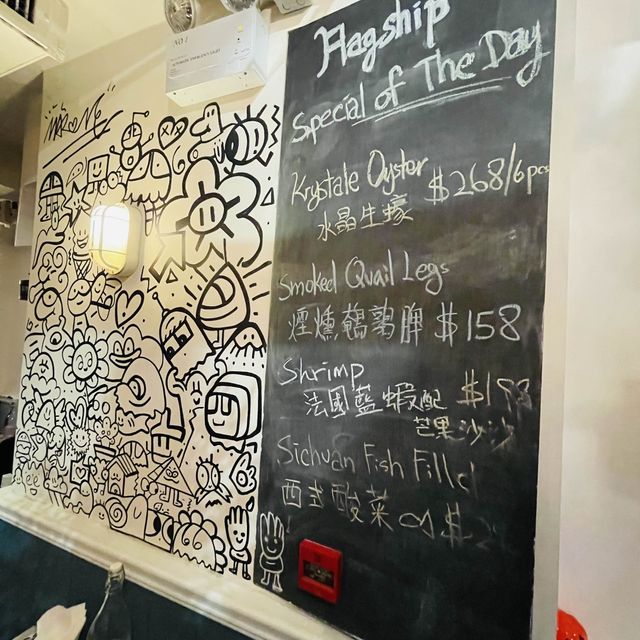 Flagship
Special of The Day
Krystale Oyster $268/6pcs
水晶生蠔
Smoked Quail Legs
煙燻鵪鶉脾 $158
Shrimp
法國藍蝦配
芒果沙沙
Sichuan Fish Fillet
酸菜
NO.1